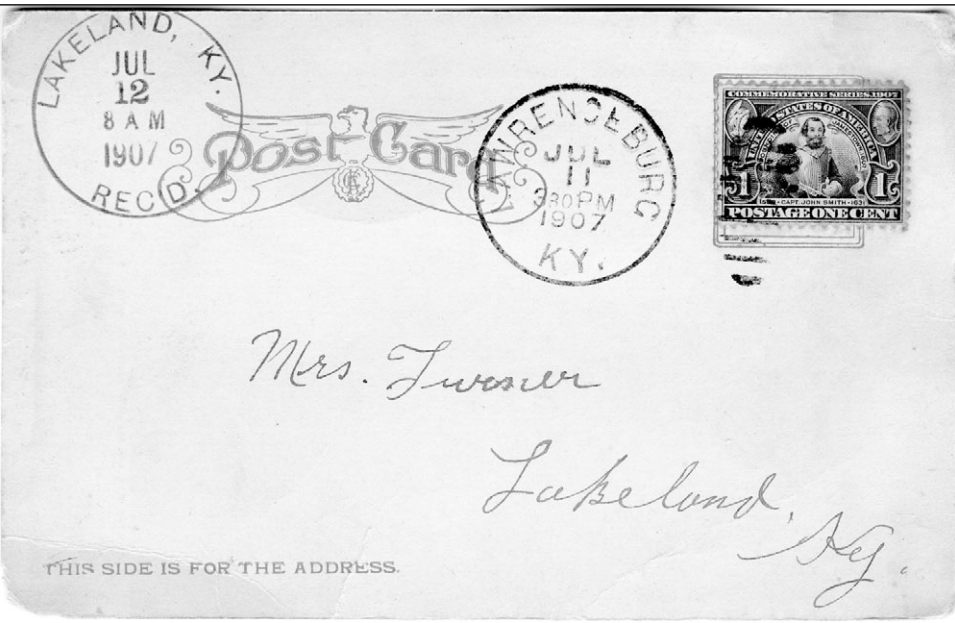 LAKELAND, KY.
JUL
12
8 AM
1907
REC'D.
Post Card
LAWRENCEBURG
JUL
11
330PM
1907
KY.
COMMEMORATIVE SERIES 1907
UNITED STATES OF AMERICA
1 1
CAPT JOHN SMITH
POSTAGE ONE CENT
Mrs. Turner
Lakeland,
Ky.
THIS SIDE IS FOR THE ADDRESS.